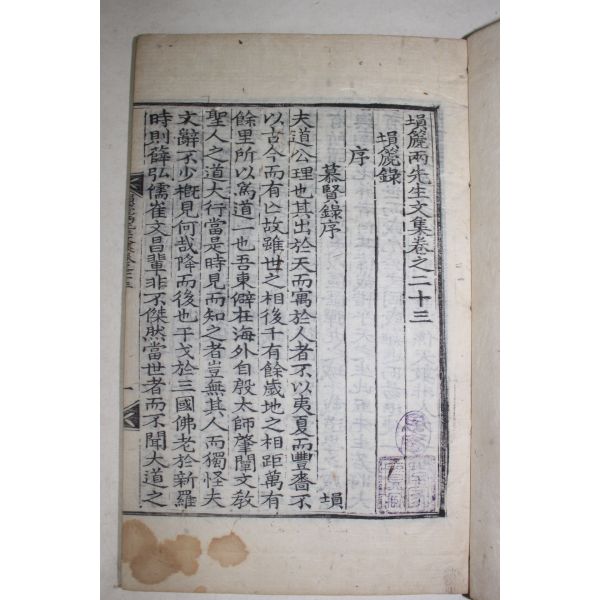 塤篪兩先生文集卷之二十三
塤篪錄
序
慕賢錄序 塤
夫道公理也其出於天而寓於人者不以夷夏而豐嗇不
以古今而有亡故雖世之相後千有餘歲地之相距萬有
餘里所以爲道一也吾東僻在海外自殷太師肇闡文敎
聖人之道大行當是時見而知之者豈無其人而獨怪夫
文辭不少槪見何哉降而後也干戈於三國佛老於新羅
時則薛弘儒崔文昌輩非不傑然當世者而不聞大道之